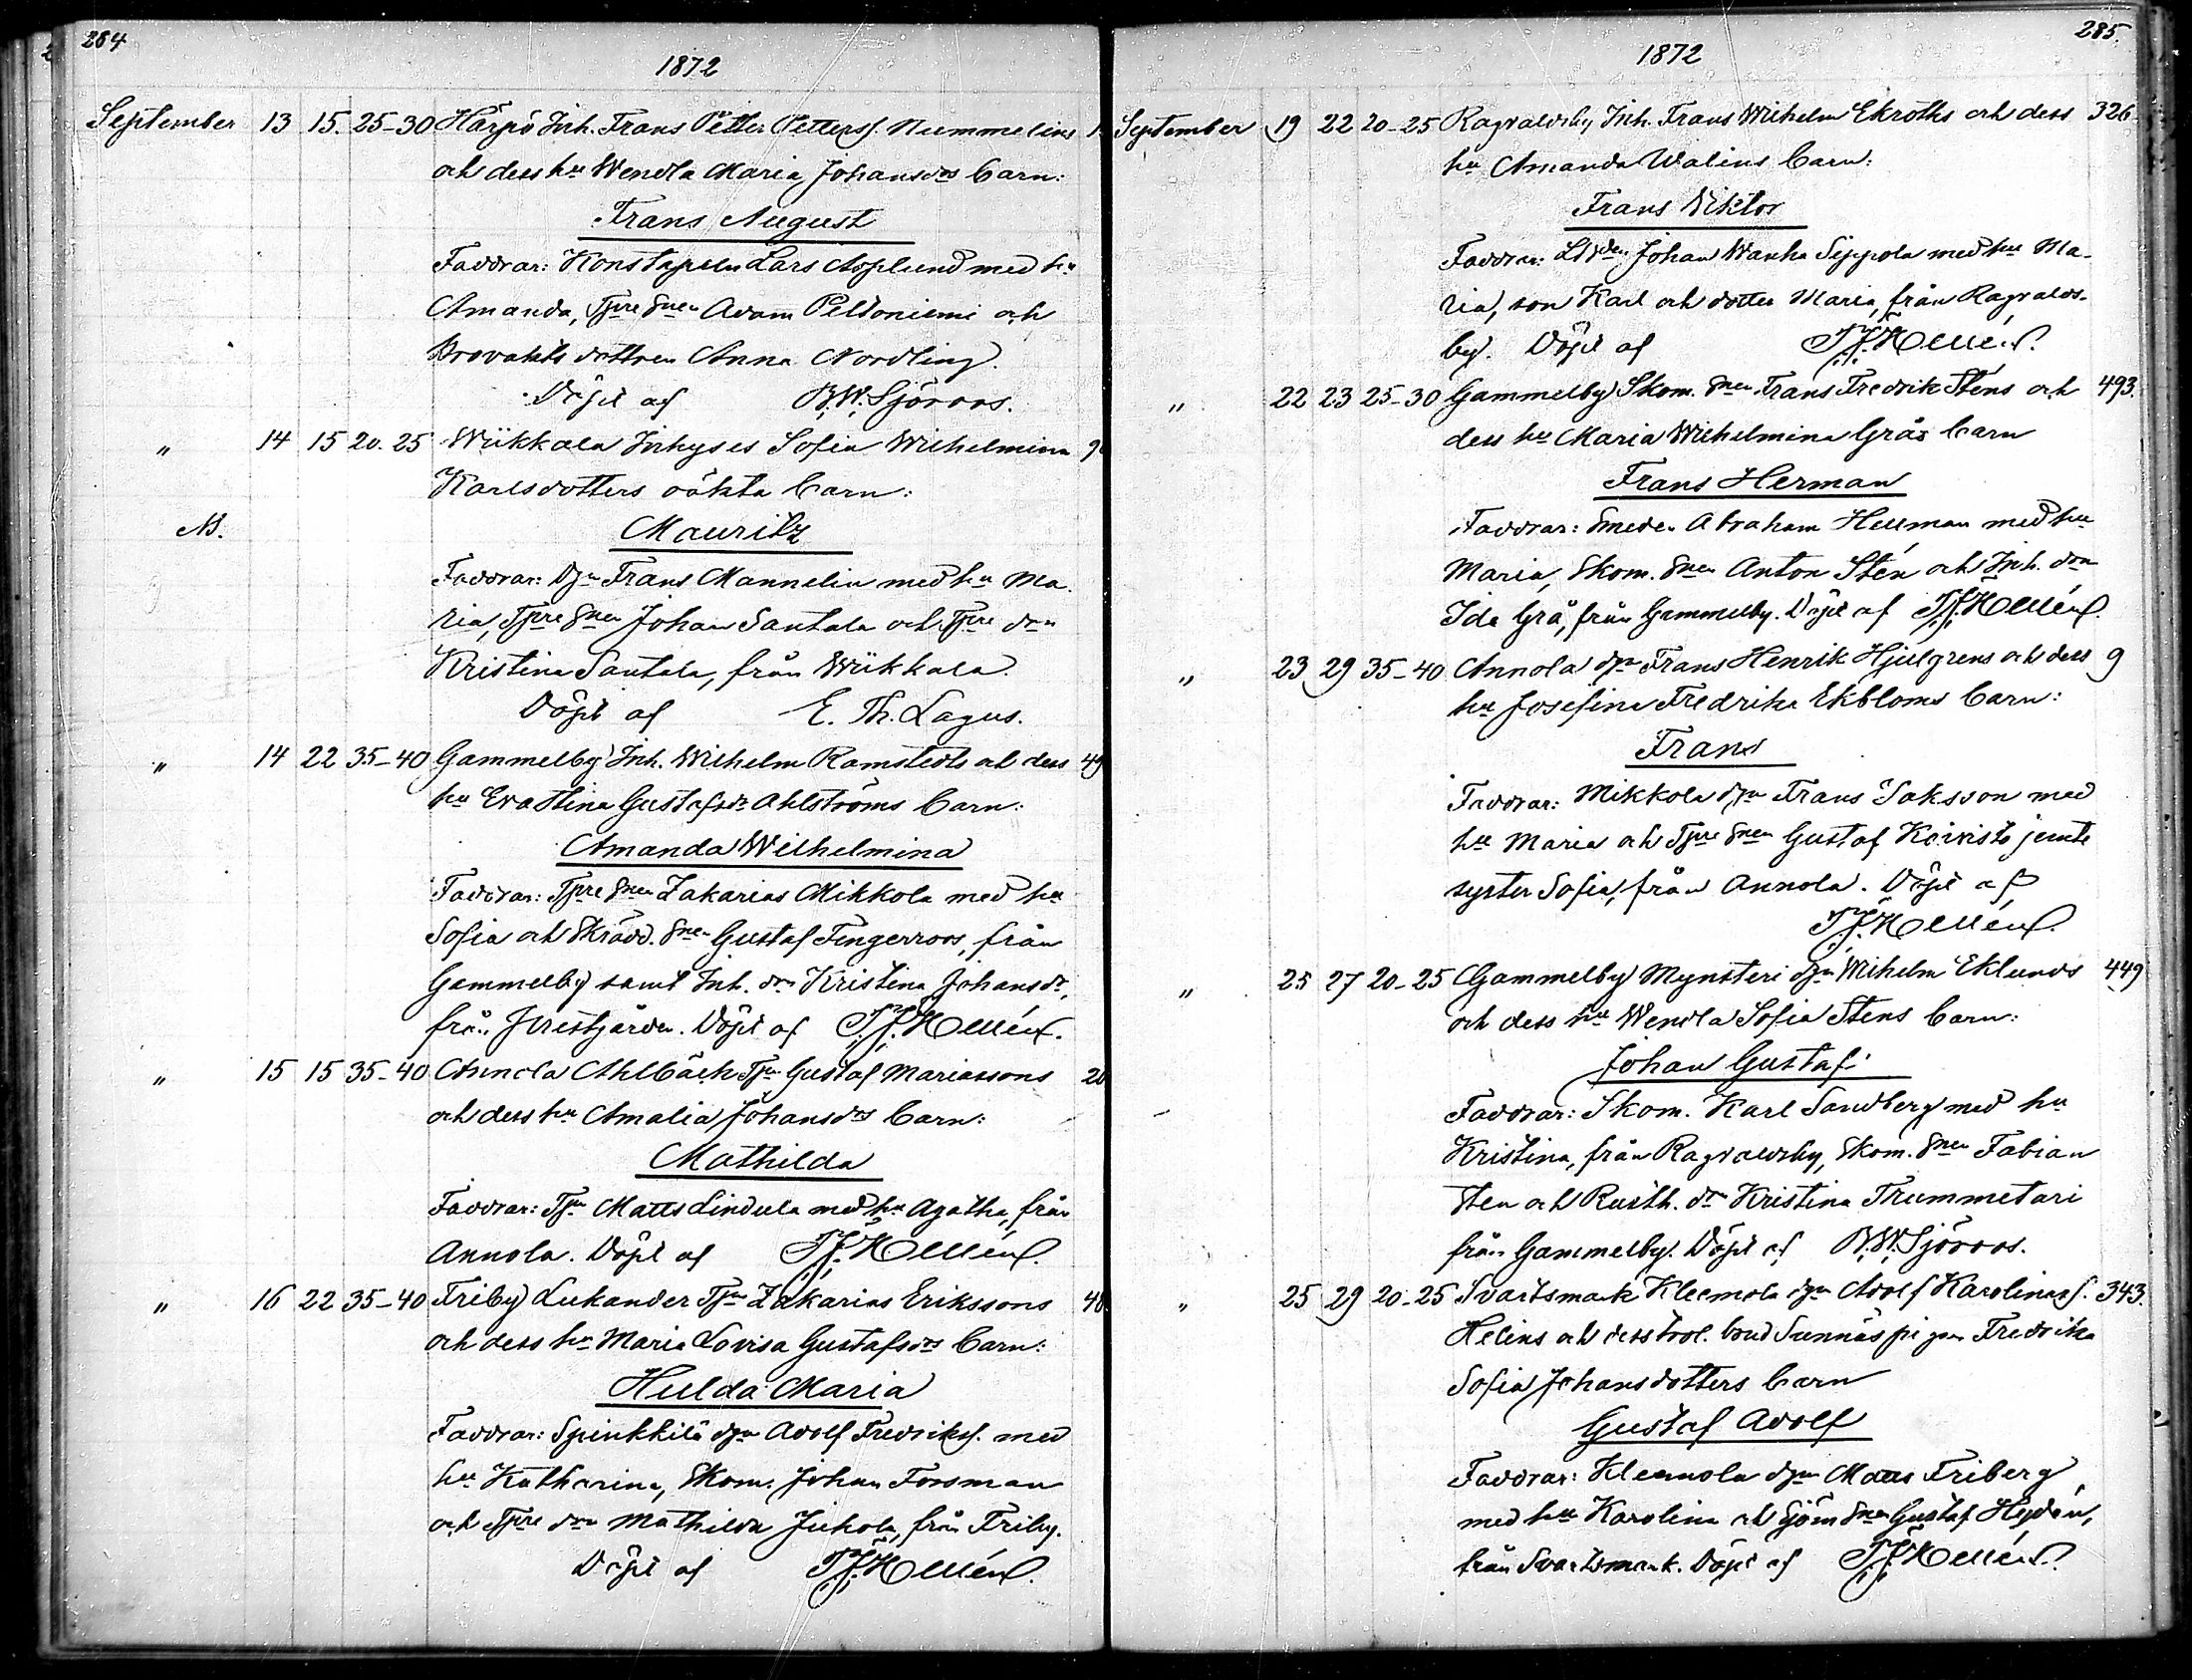 284
1872
September 13 15. 25-30 Harjo Inh. Frans Petter Petterss. Nummelins
och dess hu Wendla Maria Johansdrs barn:
Frans August
Faddrar: Konstapeln Lars Asplund med hu
Amanda, Tjre Snen Adam Peltoniemi och
dottren Anna Nordling.
Döpt af B. W. Sjöroos.
" 14 15 20. 25 Wiikkala Inhyses Sofia Wilhelmina
Karlsdotters oäkta barn:
N.
Mauritz
Faddrar: Djn Frans Mannelin med hu Ma-
ria, Tjre Snen Johan Santala och Tjre drn
Kristina Santala, från Wiikkala.
Döpt af E. Th. Lagus.
" 14 22 35-40 Gammelby Inh. Wilhelm Ramstedts och dess 49
hu Eva Stina Gustafsdr Ahlströms barn:
Amanda Wilhelmina
Faddrar: Tjre Snen Zakarias Mikkola med hu
Sofia och Skrädd. Snen Gustaf Fingerroos, från
Gammelby samt Inh. drn Kristina Johansdr,
från Prestgården. Döpt af T. T. Hollmén.
" 15 15 35-40 Annola Ahlbäck Tjn Gustaf Mariassons 20
och dess hu Amalia Johansdrs barn:
Mathilda
Faddrar: Tjn Matts Lindula med hu Agatha, från
Annola. Döpt af T. T. Hollmén.
" 16 22 35-40 Friby Lukander Tjn Zakarias Erikssons 40
och dess hu Maria Lovisa Gustafsdrs barn:
Hulda Maria
Faddrar: Spinkkilä djn Adolf Fredrikss. med
hu Katharina, Skom. Johan Forsman
och Tjre drn Mathilda Jukola, från Friby.
Döpt af T. T. Hollmén.
285.
1872
September 19 22 20-25 Ragvaldsby Inh. Frans Wilhelm Ekroths och dess 326
hu Amanda Walins barn:
Frans Viktor
Faddrar: Johan Wanha Seppola med hu Ma-
ria, son Karl och dotter Maria, från Ragvalds-
by. Döpt af T. T. Hollmén.
" 22 23 25-30 Gammelby Skom. Snen Frans Fredrik Stens och 493.
dess hu Maria Wilhelmina Grås barn
Frans Herman
Faddrar: Smeden Abraham Hellman med hu
Maria, Skom. Snen Anton Stén och Inh. drn
Ida Grå, från Gammelby. Döpt af T. T. Hollmén.
" 23 29 35-40 Annola djn Frans Henrik Hjulgrens och dess 9
hu Josefina Fredrika Ekbloms barn:
Frans
Faddrar: Mikkola djn Frans Isaksson med
hu Maria och Tjre Snen Gustaf Koivisto jemte
syster Sofia, från Annola. Döpt af
T. T. Hollmén.
" 25 27 20-25 Gammelby Mynsteri djn Wilhelm Eklunds 449
och dess hu Wendla Sofia Stens barn:
Johan Gustaf
Faddrar: Skom. Karl Sandberg med hu
Kristina, från Ragvaldsby, Skom. Snen Fabian
Sten och Rusth. drn Kristina Trummetari
från Gammelby. Döpt af B. W. Sjöroos.
" 25 29 20-25 Svartsmark Kleemola djn Adolf Karolinas. 343.
Helins och dess trol. brud Sunnäs pigan Fredrika
Sofia Johansdotters barn
Gustaf Adolf
Faddrar: Kleemola djn Matts Friberg
med hu Karolina och Sjöm Snen Gustaf Hydén,
från Svartsmark. Döpt af T. T. Hollmén.